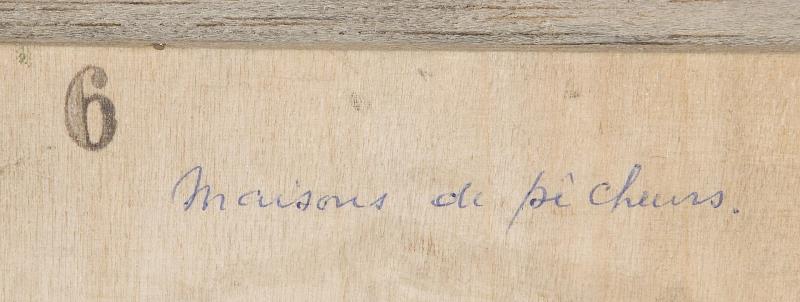 6
Maisons de pêcheurs.